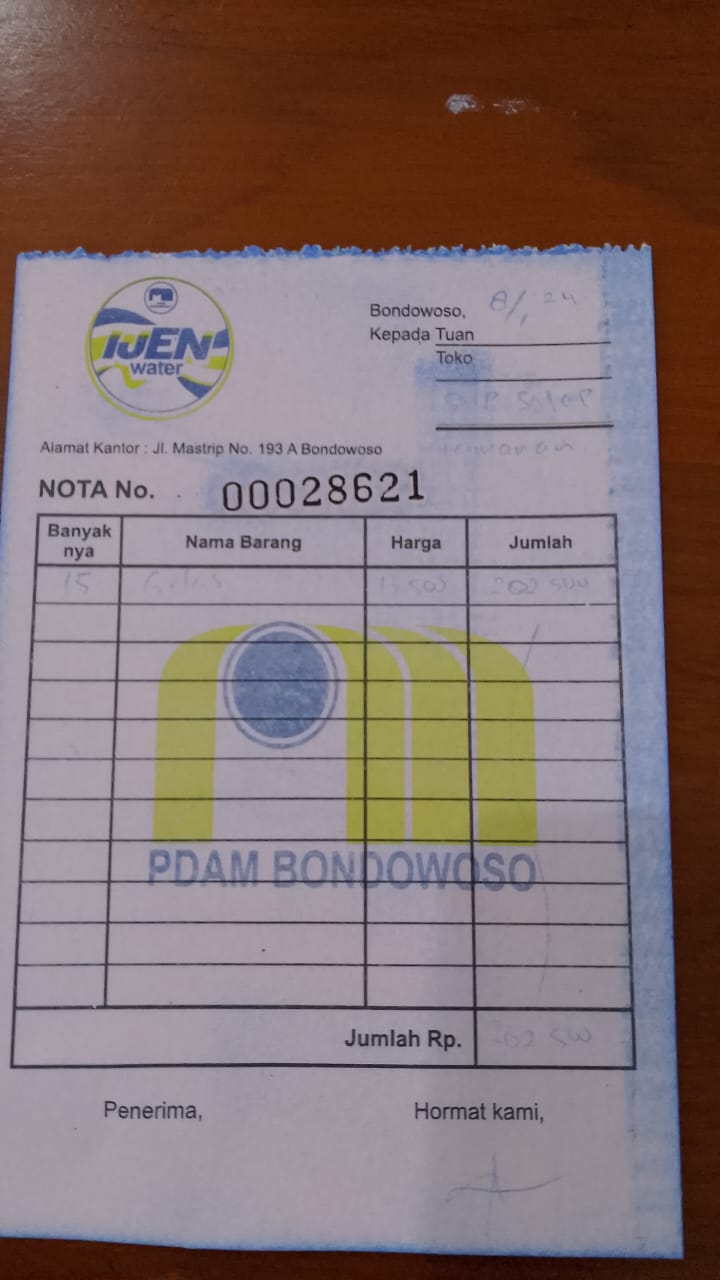 IJEN
water
Bondowoso, 8/1 24
Kepada Tuan
Toko
Alamat Kantor : Jl. Mastrip No. 193 A Bondowoso
NOTA No. 00028621
Banyak nya Nama Barang Harga Jumlah
15 Gelas 13 500 202 500
PDAM BONDOWOSO
Jumlah Rp. 202 500
Penerima, Hormat kami,